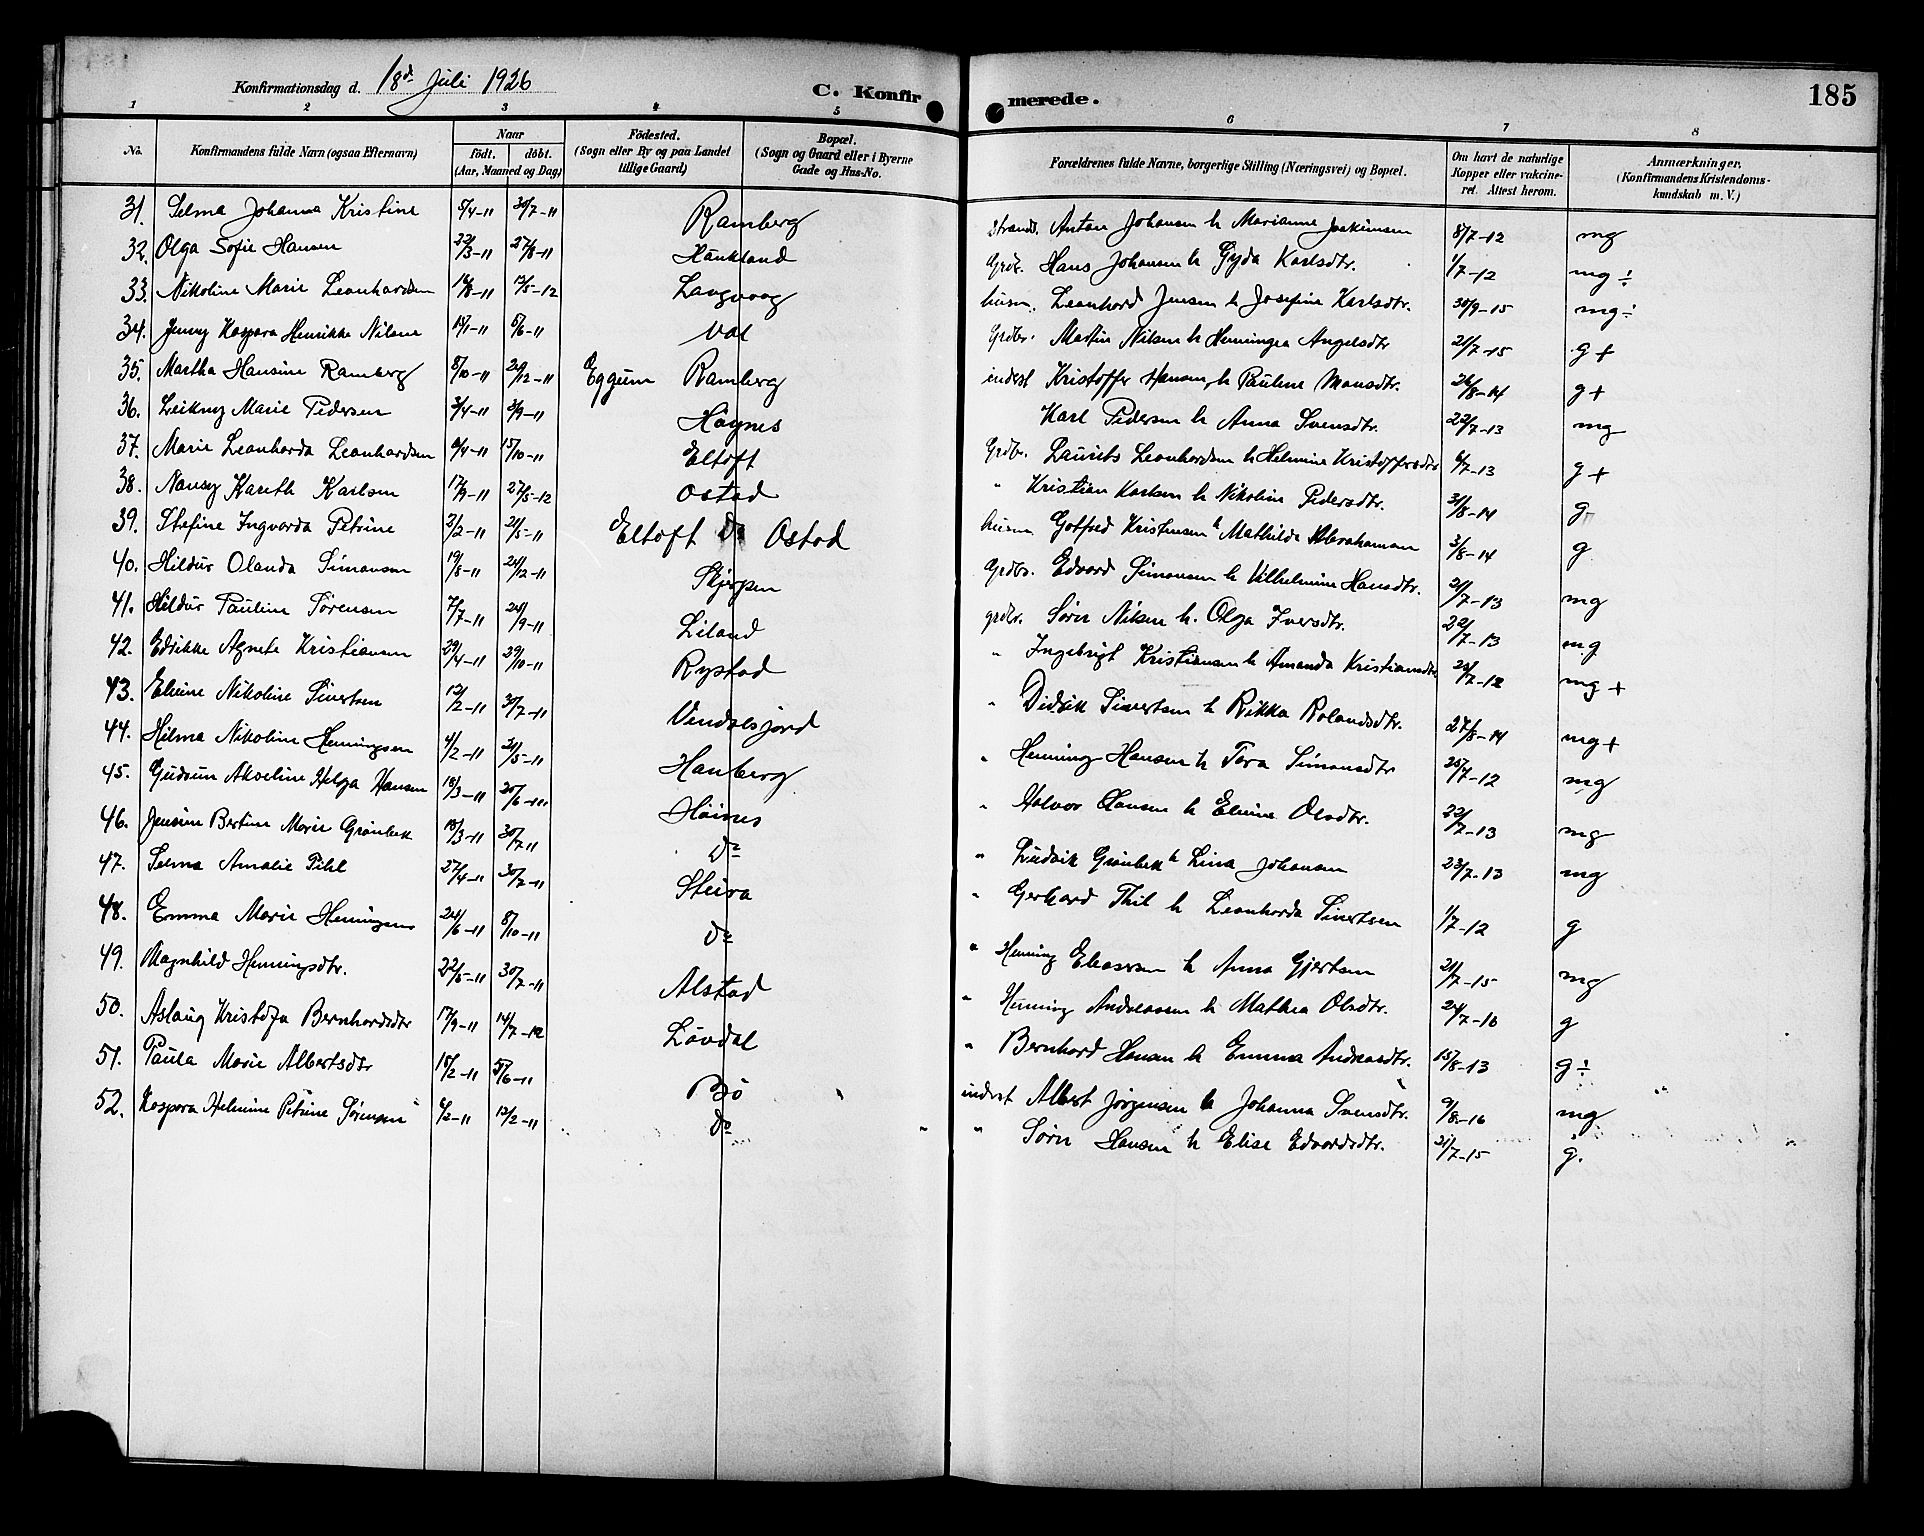 Konfirmationsdag d. 18d. Juli 1926
C. Konfirmerede.
185
1 2 3 4 5 6 7 8
No.
Konfirmandens fulde Navn (ogsaa Efternavn)
Naar
födt. döbt.
(Aar, Maaned og Dag)
Födested.
(Sogn eller By og paa Landet
tillige Gaard)
Bopæl.
(Sogn og Gaard eller i Byerne
Gade og Hus-No.
Forældrenes fulde Navne, borgerlige Stilling (Næringsvei) og Bopæl.
Om havt de naturlige
Kopper eller vakcine-
ret. Attest herom.
Anmærkninger.
(Konfirmandens Kristendoms-
kundskab m. V.)
31. Selma Johanna Kristine 5/4-11 30/7-11 Ramberg Strands. Anton Johansen h Marianne Joakimsen 8/7-12 mg
32. Olga Sofie Hansen 22/3-11 27/8-11 Haukland Grdbr. Hans Johansen h Gyda Karlsdtr. 1/7-12 mg ÷
33. Nikoline Marie Leonhardsen 14/8-11 12/5-12 Langvaag husm. Leonhard Jensen h Josefine Karlsdtr. 30/9-15 mg ÷
34. Jenny Kaspara Henrikke Nilsen 10/1-11 5/6-11 Val Grdbr. Martin Nilsen h Henningea Angelsdtr 21/7-15 g +
35. Martha Hansine Ramberg 8/10-11 26/12-11 Eggum Ramberg inderst Kristoffer Hansen h Pauline Monsdtr. 26/8-14 g +
36. Leikny Marie Pedersen 3/4-11 3/9-11 Hagnes Karl Pedersen h Anna Svensdtr. 22/7-13 mg
37. Marie Leonharda Leonhardsen 9/4-11 15/10-11 Eltoft Grdbr. Laurits Leonhardsen h Helmine Kristoffersdtr 4/7-13 g +
38. Nancy Kareth Karlsen 17/9-11 27/5-12 Ostad " Kristian Karlsen h Nikoline Pedersdtr. 31/8-14 g
39. Stefine Ingvarda Petrine 2/2-11 21/5-11 Eltoft Do Ostad husm Gotfred Kristensen h Mathilde Abrahamsen 3/8-14 g
40. Hildur Olanda Simonsen 19/8-11 26/12-11 Skjerpen Grdbr. Edvard Simonsen h Vilhelmine Hansdtr. 21/7-13 mg
41. Hildur Pauline Sörensen 7/7-11 24/9-11 Liland grdbr. Sörn Nilsen h. Olga Iversdtr. 22/7-13 mg
42. Edrikke Agnete Kristiansen 29/4-11 29/10-11 Rystad " Ingebrigt Kristiansen h Amanda Kristiansdtr 20/7-12 mg +
43. Elvine Nikoline Sivertsen 12/2-11 30/7-11 Vendalsjord " Didrik Sivertsen h Rikka Rolandsdtr. 27/8-14 mg +
44. Hilma Nikoline Henningsen 4/2-11 21/5-11 Hauberg " Henning Hansen h Tora Simonsdtr 25/7-12 mg
45. Gudrun Akseline Helga Hansen 18/3-11 20/6-11 Höines " Halvor Hansen h Elvine Olsdtr. 22/7-13 mg
46. Jensine Bertine Marie Grönbek 18/3-11 30/7 11 Do " Ludvik Grönbek h Lina Johansen 23/7-13 mg
47. Selma Amalie Pihl 27/4-11 30/7-11 Steira " Gerhard Thil h Leonharda Sivertsen 1/7-12 g
48. Emma Marie Henningsen 24/6-11 8/10-11 Do " Henning Eliassen h Anna Gjertsen 21/7-15 mg
49. Magnhild Henningsdtr. 22/5-11 30/7-11 Alstad " Henning Andreassen h Mathea Olsdtr. 24/7-16 g
50. Aslaug Kristofa Bernhardsdtr 17/9-11 14/7-12 Lövdal " Bernhard Hansen h Emma Andreasdtr. 15/8-13 g ÷
51. Paula Marie Albertsdtr 15/2-11 5/6-11 Bö inderst Albert Jörgensen h Johanna Svensdtr. 9/8-16 mg
52. Kaspara Helmine Petrine Sörensen 4/2-11 12/2-11 Do " Sörn Hansen h Elise Edvardsdtr. 21/7-15 g.